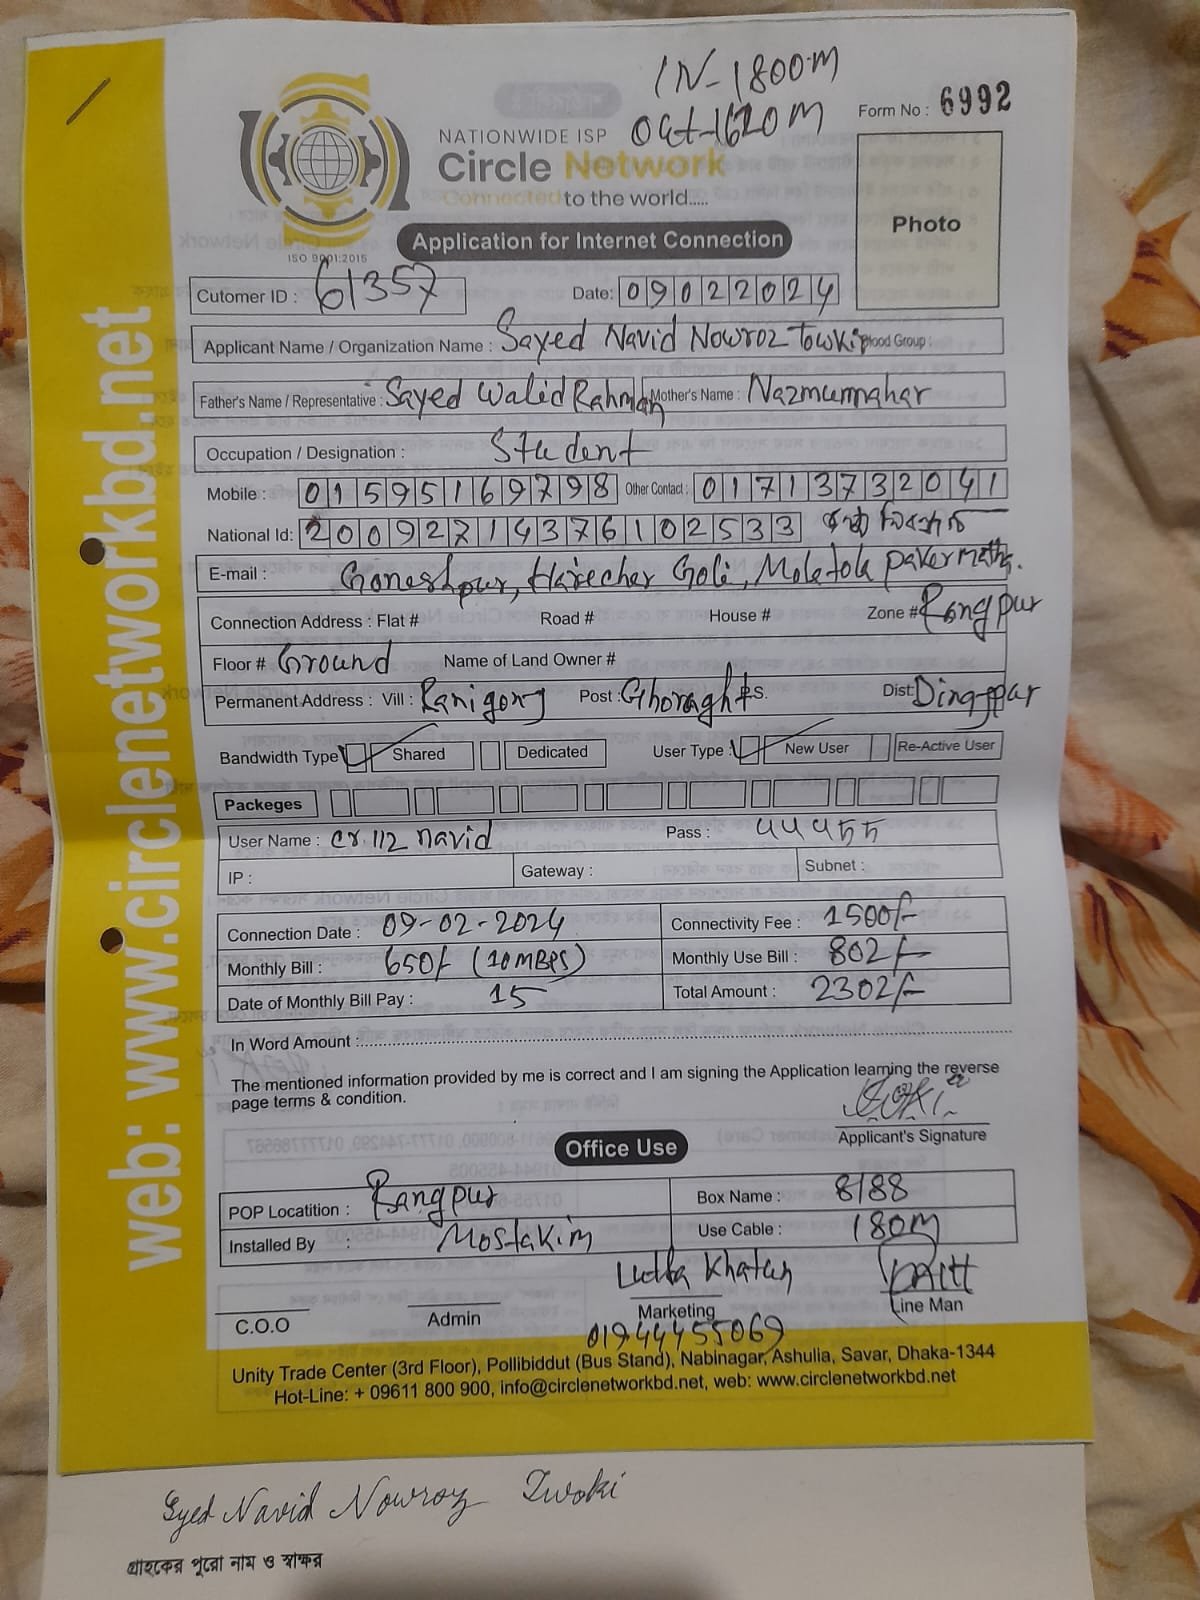 IN-1800m
Out-1620m
Form No : 6992
NATIONWIDE ISP
Circle Network
Connected to the world.....
ISO 9001:2015
Photo
Application for Internet Connection
Cutomer ID : 61357 Date: 09022024
Applicant Name / Organization Name : Sayed Navid Nowroz Towkip Blood Group :
Father's Name / Representative : Sayed Walid Rahman Mother's Name : Nazmunnahar
Occupation / Designation : Student
Mobile : 01595169798 Other Contact : 01713732041
National Id: 20092714376102533
E-mail : Goneshpur, Harecher Goli, Moletola pakermatha.
Connection Address : Flat # Road # House # Zone # Rangpur
Floor # Ground Name of Land Owner #
Permanent Address : Vill : Ranigong Post : Ghoraght P.S. Dist: Dinajpur
Bandwidth Type Shared Dedicated User Type : New User Re-Active User
Packeges
User Name : cr.112 navid Pass :
IP : Gateway : Subnet :
Connection Date : 09-02-2024 Connectivity Fee : 1500/-
Monthly Bill : 650/- (10MBPS) Monthly Use Bill : 802/-
Date of Monthly Bill Pay : 15 Total Amount : 2302/-
In Word Amount :
The mentioned information provided by me is correct and I am signing the Application learning the reverse
page terms & condition.
Applicant's Signature
Office Use
POP Locatition : Rangpur Box Name : 8188
Installed By : Mostakim Use Cable : 180m
Lutfa Khatun
C.O.O Admin Marketing Line Man
01944455069
Unity Trade Center (3rd Floor), Pollibiddut (Bus Stand), Nabinagar, Ashulia, Savar, Dhaka-1344
Hot-Line: + 09611 800 900, info@circlenetworkbd.net, web: www.circlenetworkbd.net
web: www.circlenetworkbd.net
Syed Navid Nowroz Twoki
গ্রাহকের পুরো নাম ও স্বাক্ষর